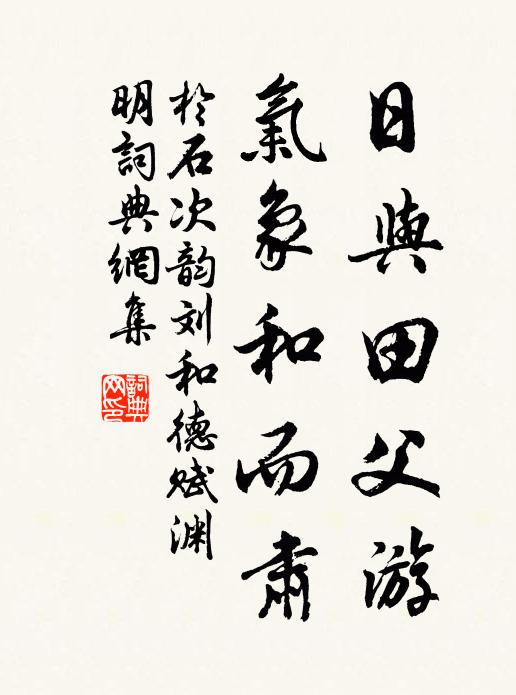 日與田父游
氣象和而肅
於石次韵刘和德赋渊
明詞典網集
詞典
网印